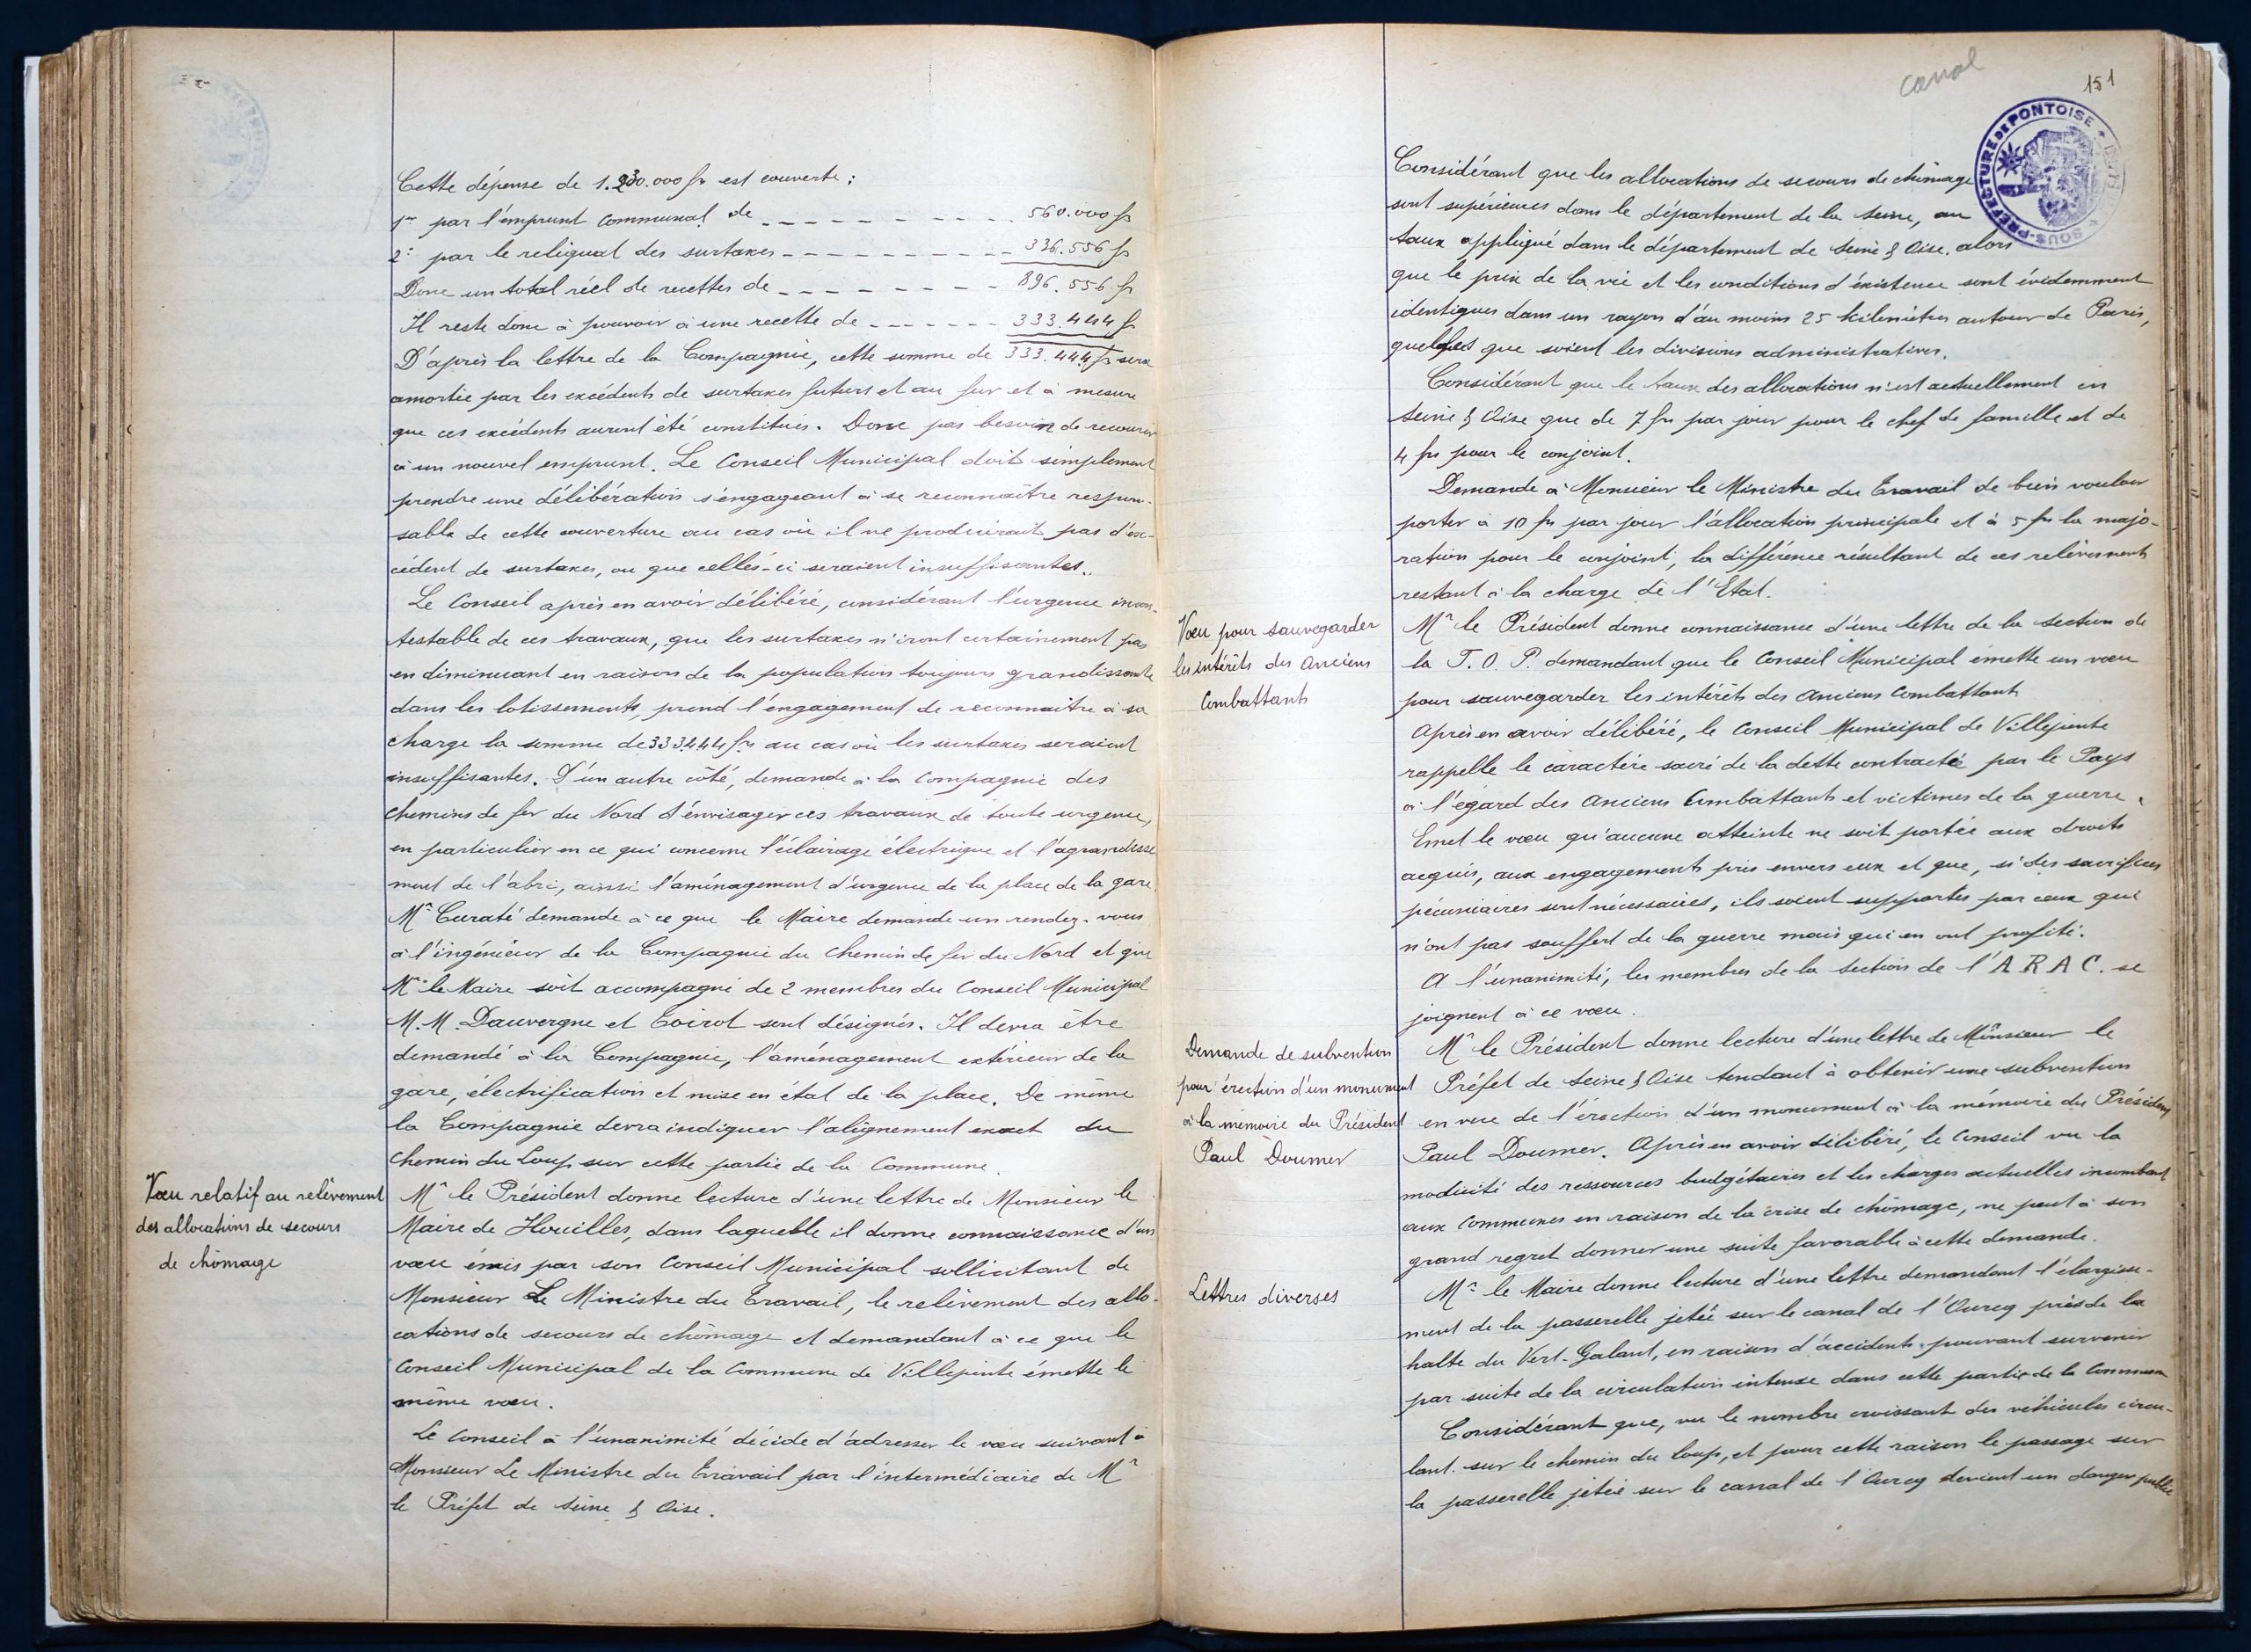 Cette dépense de 1.230.000 fr est couverte :
1er par l'emprunt Communal de _ _ _ _ _ _ . . . 560.000 fr
2: par le reliquat des surtaxes _ _ _ _ _ _ _ _ 336.556 fr
Donc un total réel de recettes de _ _ _ _ _ _ _ 896.556 fr
Il reste donc à pourvoir à une recette de _ _ _ _ _ 333.444 fr
D'après la lettre de la Compagnie, cette somme de 333.444 fr sera
amortie par les excédents de surtaxes futurs et au fur et à mesure
que ces excédents auront été constitués. Donc pas besoin de recourir
à un nouvel emprunt. Le Conseil Municipal doit simplement
prendre une délibération s'engageant à se reconnaître respon-
sable de cette couverture au cas où il ne produirait pas d'ex-
cédent de surtaxes, ou que celles-ci seraient insuffisantes.
Le Conseil après en avoir délibéré, considérant l'urgence incon-
testable de ces travaux, que les surtaxes n'iront certainement pas
en diminuant en raison de la population toujours grandissante
dans les lotissements, prend l'engagement de reconnaître à sa
charge la somme de 333.444 frs au cas où les surtaxes seraient
insuffisantes. D'un autre côté, demande à la Compagnie des
Chemins de fer du Nord d'envisager ces travaux de toute urgence,
en particulier en ce qui concerne l'éclairage électrique et l'agrandisse
ment de l'abri, ainsi l'aménagement d'urgence de la place de la gare.
Mr Curaté demande à ce que le Maire demande un rendez-vous
à l'ingénieur de la Compagnie du Chemin de fer du Nord et que
Mr le Maire soit accompagné de 2 membres du Conseil Municipal
M.M. Dauvergne et Toirot sont désignés. Il devra être
demandé à la Compagnie, l'aménagement extérieur de la
gare, électrification et mise en état de la place. De même
la Compagnie devra indiquer l'alignement exact du
Chemin du Loup sur cette partie de la Commune.
Vœu relatif au relèvement
des allocations de secours
de chômage
Mr le Président donne lecture d'une lettre de Monsieur le
Maire de Houilles, dans laquelle il donne connaissance d'un
vœu émis par son Conseil Municipal sollicitant de
Monsieur Le Ministre du Travail, le relèvement des allo-
cations de secours de chômage et demandant à ce que le
Conseil Municipal de la Commune de Villepinte émette le
même vœu.
Le Conseil à l'unanimité décide d'adresser le vœu suivant à
Monsieur Le Ministre du Travail par l'intermédiaire de Mr
le Préfet de Seine & Oise.
canal
151
SOUS-PRÉFECTURE DE PONTOISE
Considérant que les allocations de secours de chômage
sont supérieures dans le département de la Seine, au
taux appliqué dans le département de Seine & Oise. alors
que le prix de la vie et les conditions d'éxistence sont évidemment
identiques dans un rayon d'au moins 25 kilomètres autour de Paris,
quelques que soient les divisions administratives.
Considérant que le taux des allocations n'est actuellement en
Seine & Oise que de 7 frs par jour pour le chef de famille et de
4 frs pour le conjoint.
Demande à Monsieur le Ministre du Travail de bien vouloir
porter à 10 frs par jour l'allocation principale et à 5 frs la majo-
ration pour le conjoint, la différence résultant de ces relèvements
restant à la charge de l'Etat.
Vœu pour sauvegarder
les intérêts des Anciens
Combattants
Mr le Président donne connaissance d'une lettre de la Section de
la T.O.P. demandant que le Conseil Municipal émette un vœu
pour sauvegarder les intérêts des Anciens Combattants
Après en avoir délibéré, le Conseil Municipal de Villepinte
rappelle le caractère sacré de la dette contractée par le Pays
à l'égard des Anciens Combattants et victimes de la guerre.
Emet le vœu qu'aucune atteinte ne soit portée aux droits
acquis, aux engagements pris envers eux et que, si des sacrifices
pécuniaires sont nécessaires, ils soient supportés par ceux qui
n'ont pas souffert de la guerre mais qui en ont profité.
A l'unanimité, les membres de la Section de l'A.R.A.C. se
joignent à ce vœu.
Demande de subvention
pour érection d'un monument
à la mémoire du Président
Paul Doumer
Mr le Président donne lecture d'une lettre de Monsieur le
Préfet de Seine & Oise tendant à obtenir une subvention
en vue de l'érection d'un monument à la mémoire du Président
Paul Doumer. Après en avoir délibéré, le Conseil vu la
modicité des ressources budgétaires et les charges actuelles incombant
aux Communes en raison de la crise de chômage, ne peut à son
grand regret donner une suite favorable à cette demande.
Lettres diverses
Mr le Maire donne lecture d'une lettre demandant l'élargisse-
ment de la passerelle jetée sur le canal de l'Ourcq près de la
halte du Vert-Galant, en raison d'accidents pouvant survenir
par suite de la circulation intense dans cette partie de la Commune
Considérant que, vu le nombre croissant des véhicules circu-
lant sur le chemin du loup, et pour cette raison le passage sur
la passerelle jetée sur le canal de l'Ourcq devient un danger public